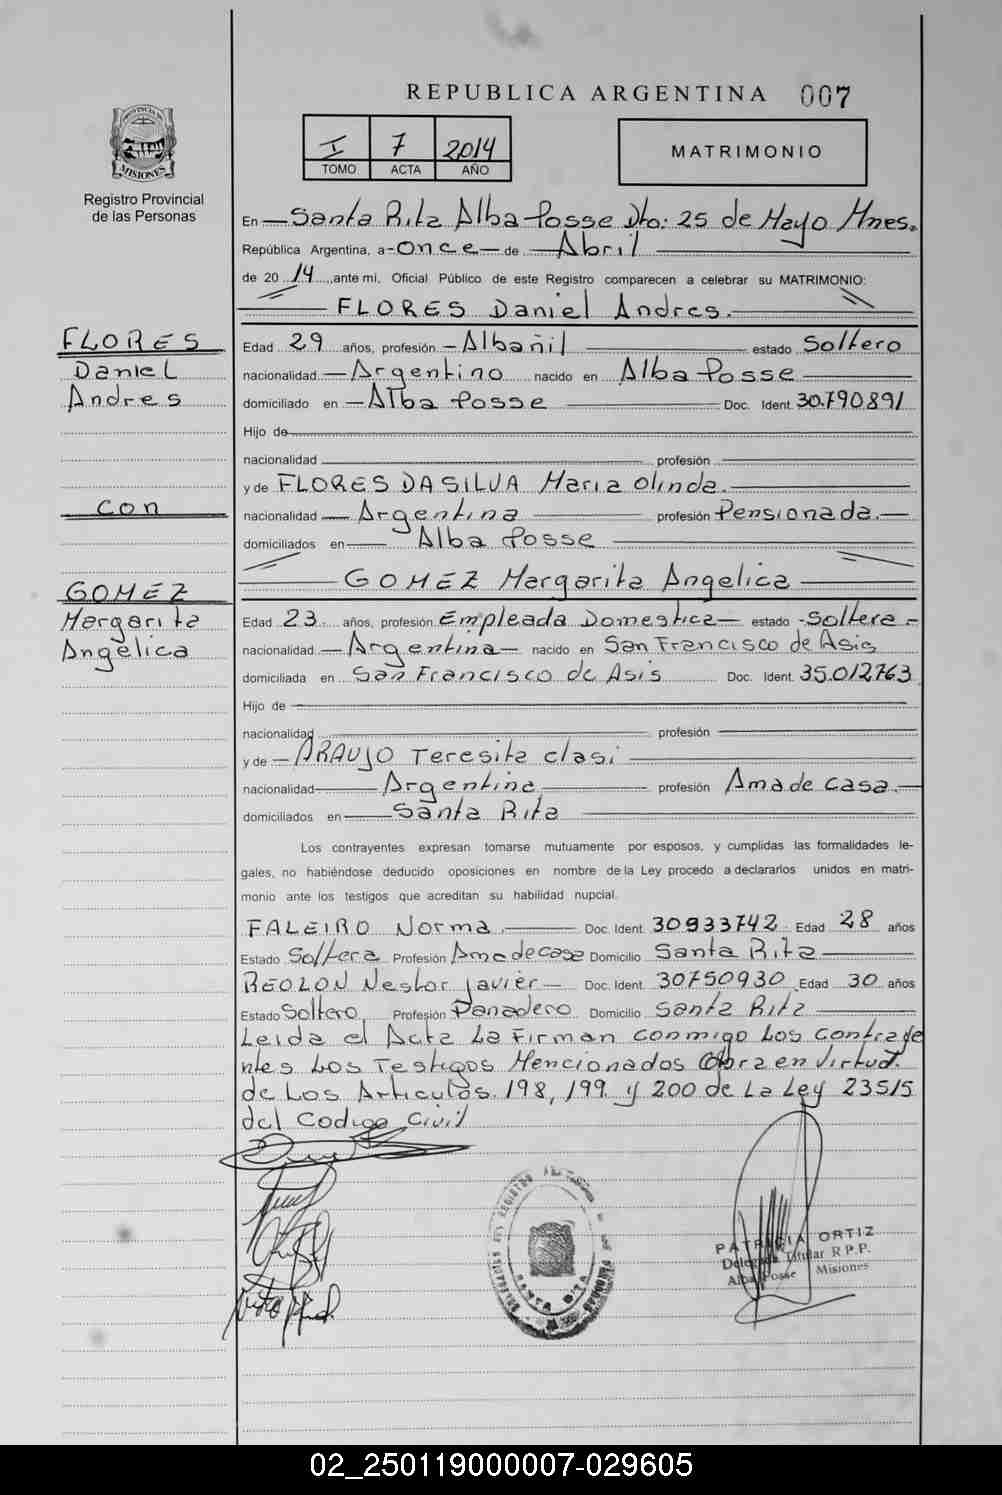 REPUBLICA ARGENTINA 007
PROVINCIA DE
MISIONES
Registro Provincial
de las Personas
I 7 2014
TOMO ACTA AÑO
MATRIMONIO
En Santa Rita Alba Posse Dto: 25 de Mayo Mnes.
República Argentina, a once de Abril
de 20 14, ante mi, Oficial Público de este Registro comparecen a celebrar su MATRIMONIO:
FLORES Daniel Andres.
FLORES
Daniel
Andres
con
GOMEZ
Margarita
Angelica
Edad 29 años, profesión Albañil estado Soltero
nacionalidad Argentino nacido en Alba Posse
domiciliado en Alba Posse Doc. Ident. 30.790891
Hijo de
nacionalidad profesión
y de FLORES DA SILVA Maria Olinda.
nacionalidad Argentina profesión Pensionada.
domiciliados en Alba Posse
GOMEZ Margarita Angelica
Edad 23 años, profesión Empleada Domestica estado Soltera
nacionalidad Argentina nacido en San Francisco de Asis
domiciliada en San Francisco de Asis Doc. Ident. 35.012763
Hijo de
nacionalidad profesión
y de ARAUJO Teresita clasi
nacionalidad Argentina profesión Ama de casa.
domiciliados en Santa Rita
Los contrayentes expresan tomarse mutuamente por esposos, y cumplidas las formalidades le-
gales, no habiéndose deducido oposiciones en nombre de la Ley procedo a declararlos unidos en matri-
monio ante los testigos que acreditan su habilidad nupcial.
FALEIRO Norma Doc. Ident. 30933742 Edad 28 años
Estado Soltera Profesión Ama de casa Domicilio Santa Rita
REOLON Nestor Javier Doc. Ident. 30750930 Edad 30 años
Estado Soltero Profesión Panadero Domicilio Santa Rita
Leida el Acta La Firman conmigo Los contraye
ntes Los Testigos Mencionados Obra en virtud.
de Los Articulos. 198, 199. y 200 de La Ley 23515
del Codigo Civil
SANTA RITA
PATRICIA ORTIZ
Delegada Titular R.P.P.
Alba Posse Misiones
02_250119000007-029605